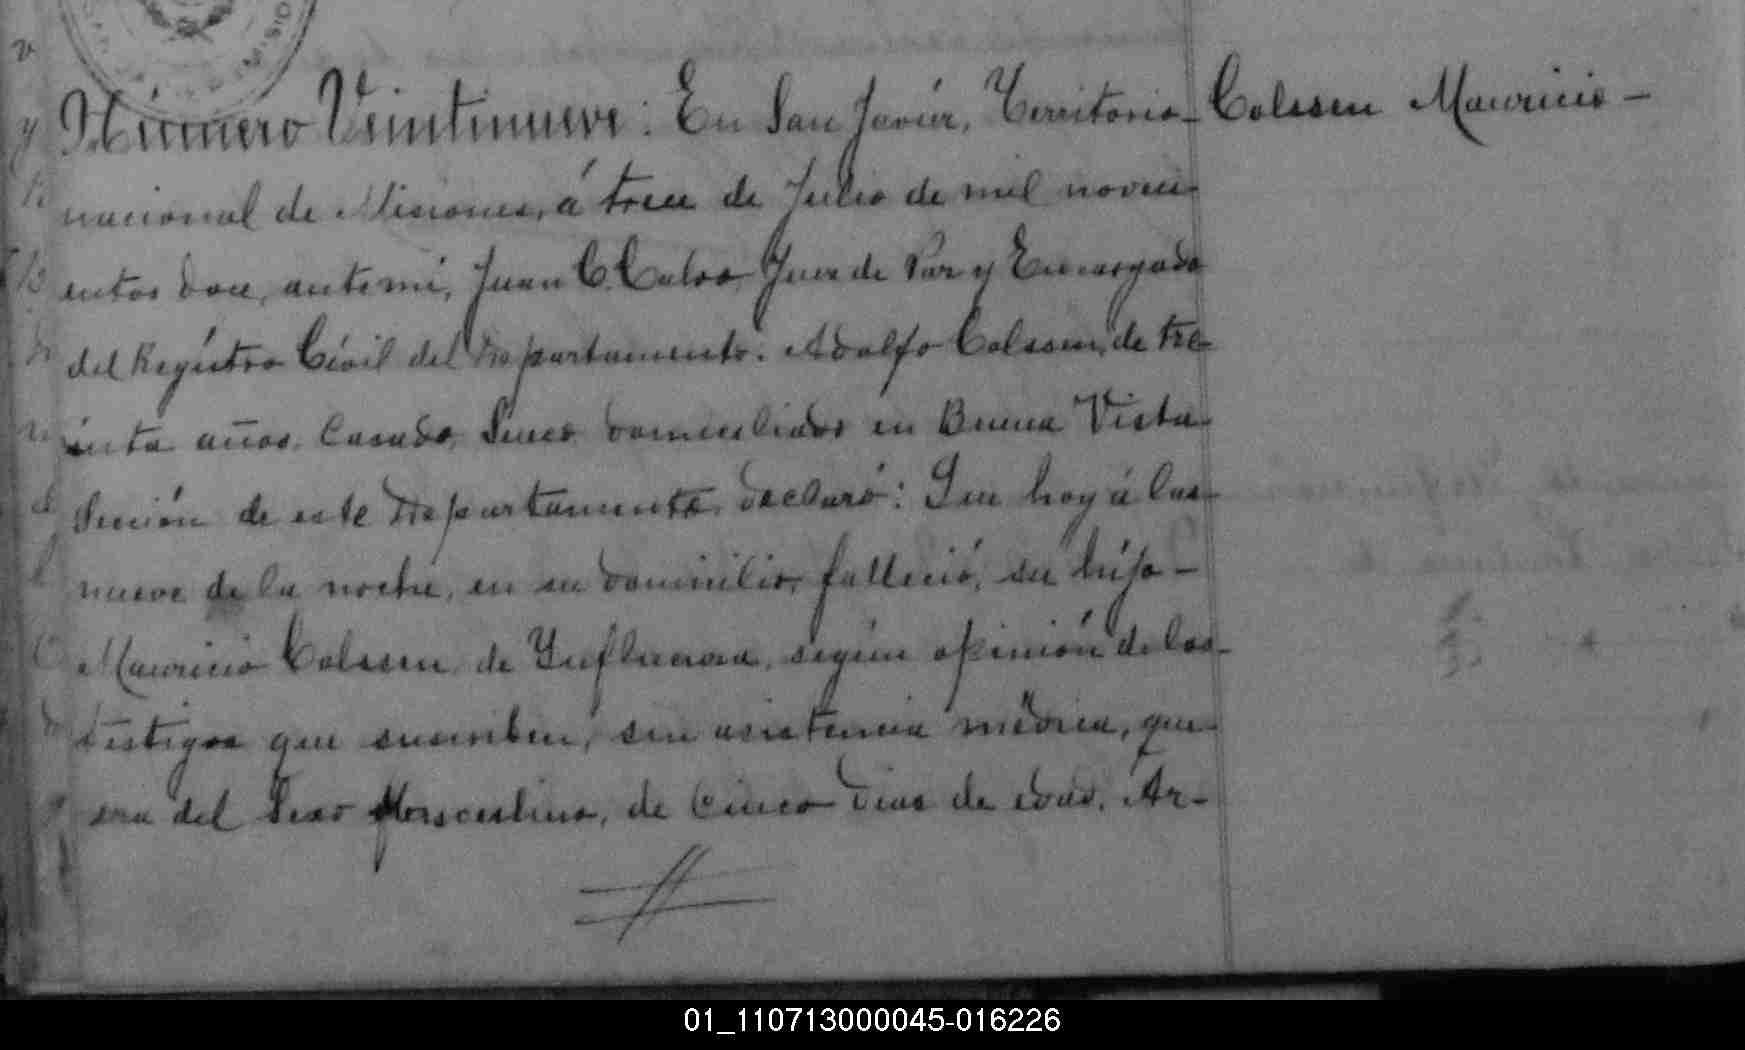 Número Veintinueve: En San Javiér, Territorio- Colssen Mauricio-
nacional de Misiones, á trece de Julio de mil noveci-
entos doce, ante mi, Juan C. Calvo Juez de Paz y Encargado
del Registro Civil del Departamento. Adolfo Colssen, de tre-
inta años, Casado, Sueco domiciliado en Buena Vista
Sección de este Departamento declaró: Que hoy á las
nueve de la noche, en su domicilio, falleció, su hijo-
Mauricio Colssen de Influenza, según opinión de los-
testigos que suscriben, sin asistencia médica, que
era del Sexo Mascculino, de Cinco dias de edad. Ar-
01_110713000045-016226